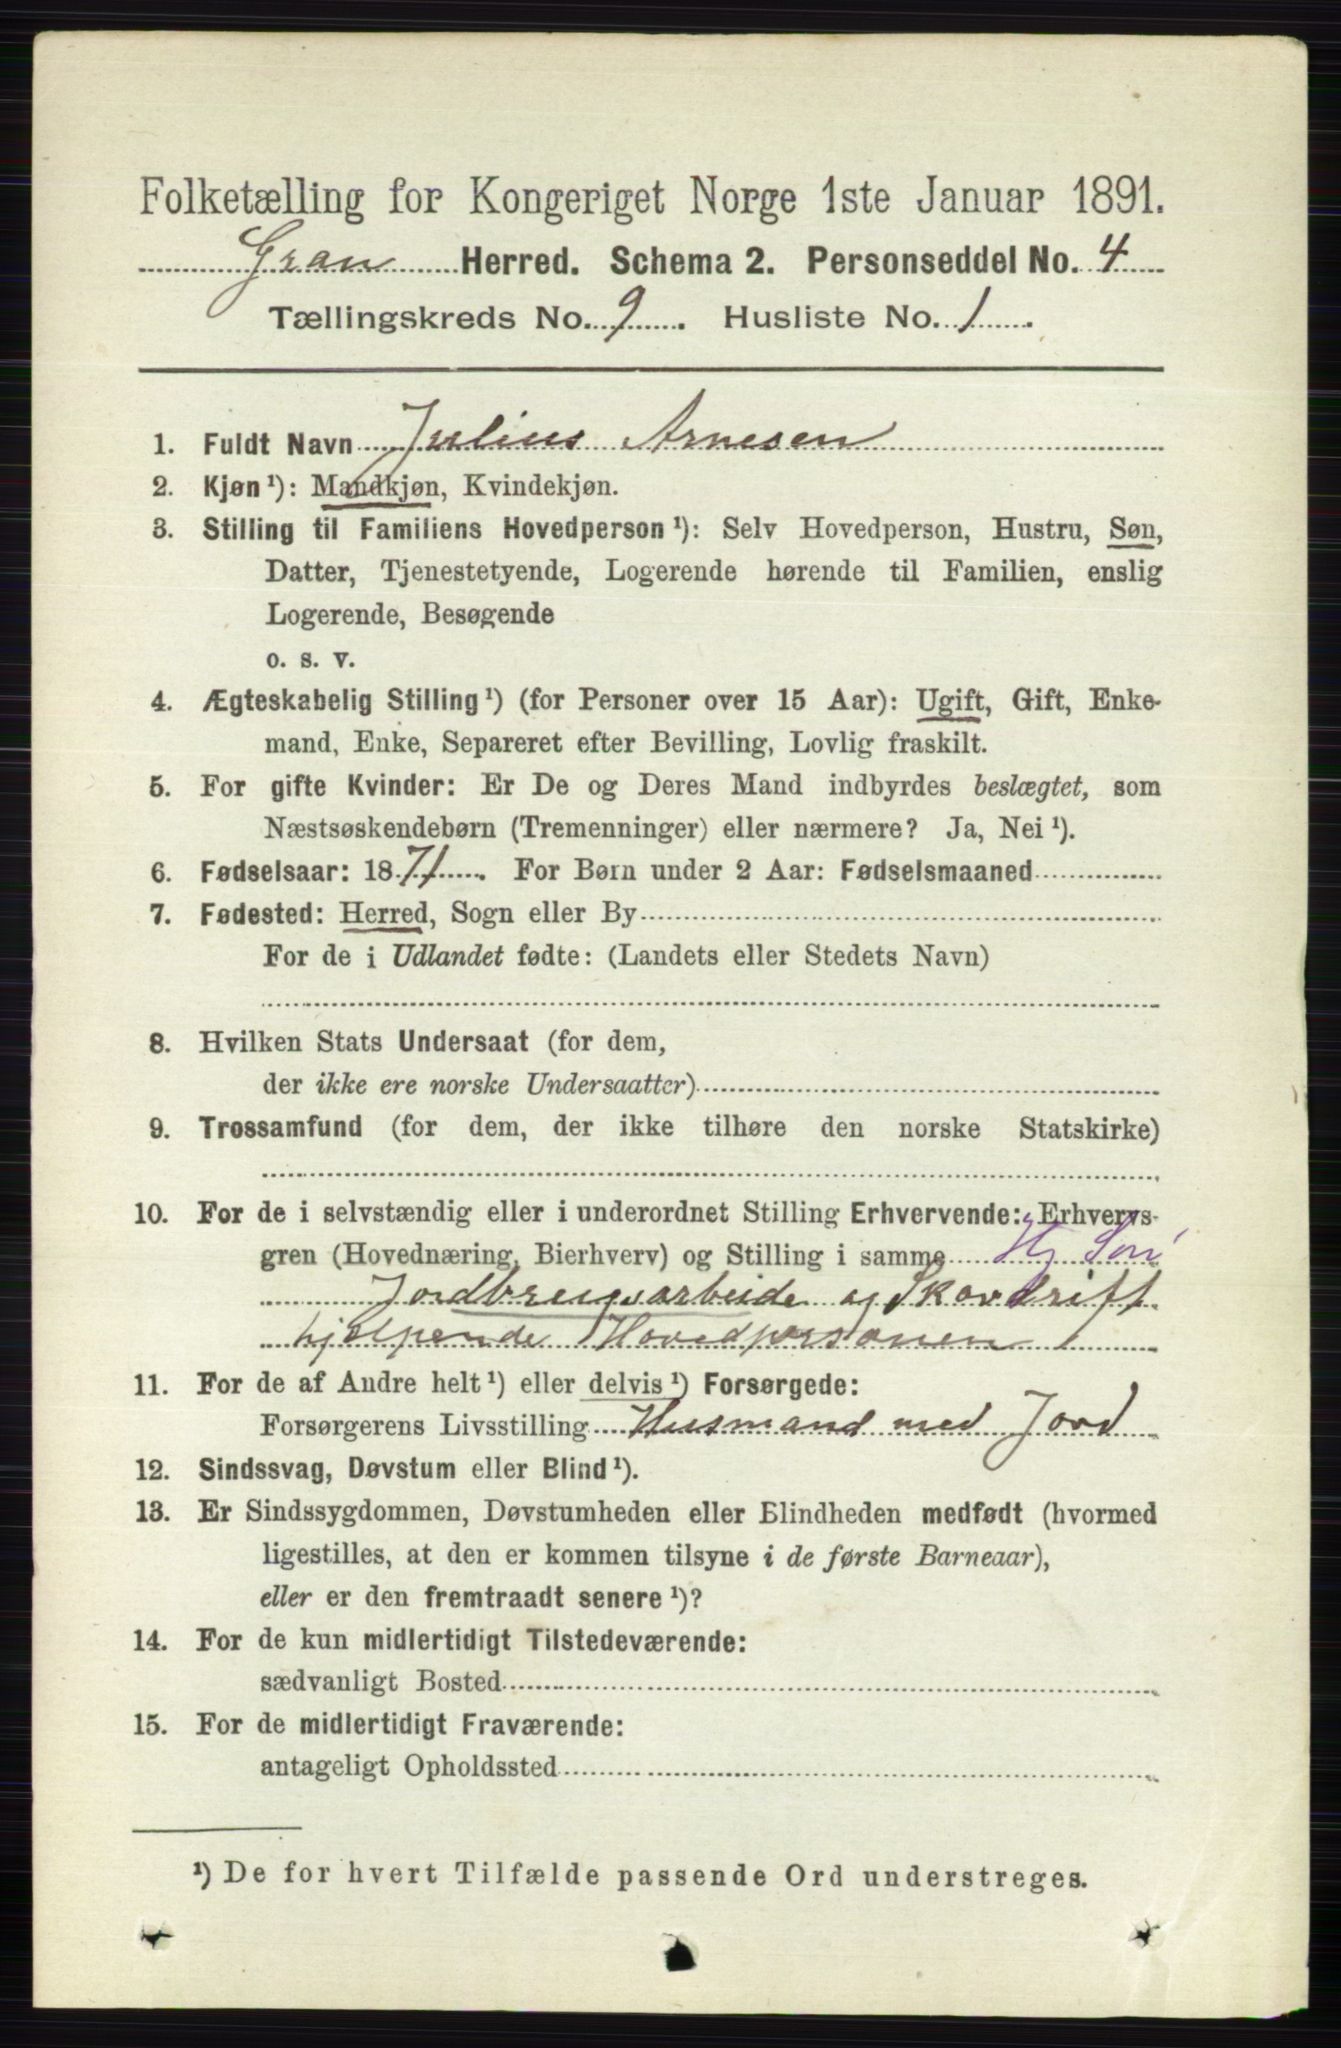 Folketælling for Kongeriget Norge 1ste Januar 1891.
Gran Herred. Schema 2. Personseddel No. 4
Tællingskreds No. 9. Husliste No. 1.
1. Fuldt Navn Julius Arnesen
2. Kjøn ¹): Mandkjøn, Kvindekjøn.
3. Stilling til Familiens Hovedperson ¹): Selv Hovedperson, Hustru, Søn,
Datter, Tjenestetyende, Logerende hørende til Familien, enslig
Logerende, Besøgende
o. s. v.
4. Ægteskabelig Stilling ¹) (for Personer over 15 Aar): Ugift, Gift, Enke-
mand, Enke, Separeret efter Bevilling, Lovlig fraskilt.
5. For gifte Kvinder: Er De og Deres Mand indbyrdes beslægtet, som
Næstsøskendebørn (Tremenninger) eller nærmere? Ja, Nei ¹).
6. Fødselsaar: 1871. For Børn under 2 Aar: Fødselsmaaned
7. Fødested: Herred, Sogn eller By
For de i Udlandet fødte: (Landets eller Stedets Navn)
8. Hvilken Stats Undersaat (for dem,
der ikke ere norske Undersaatter)
9. Trossamfund (for dem, der ikke tilhøre den norske Statskirke)
10. For de i selvstændig eller i underordnet Stilling Erhvervende: Erhvervs-
gren (Hovednæring, Bierhverv) og Stilling i samme Hj Søn
Jordbrugsarbeide og Skovdrift
hjelpende Hovedpersonen
11. For de af Andre helt ¹) eller delvis ¹) Forsørgede:
Forsørgerens Livsstilling Husmand med Jord
12. Sindssvag, Døvstum eller Blind ¹).
13. Er Sindssygdommen, Døvstumheden eller Blindheden medfødt (hvormed
ligestilles, at den er kommen tilsyne i de første Barneaar),
eller er den fremtraadt senere ¹)?
14. For de kun midlertidigt Tilstedeværende:
sædvanligt Bosted
15. For de midlertidigt Fraværende:
antageligt Opholdssted
¹) De for hvert Tilfælde passende Ord understreges.